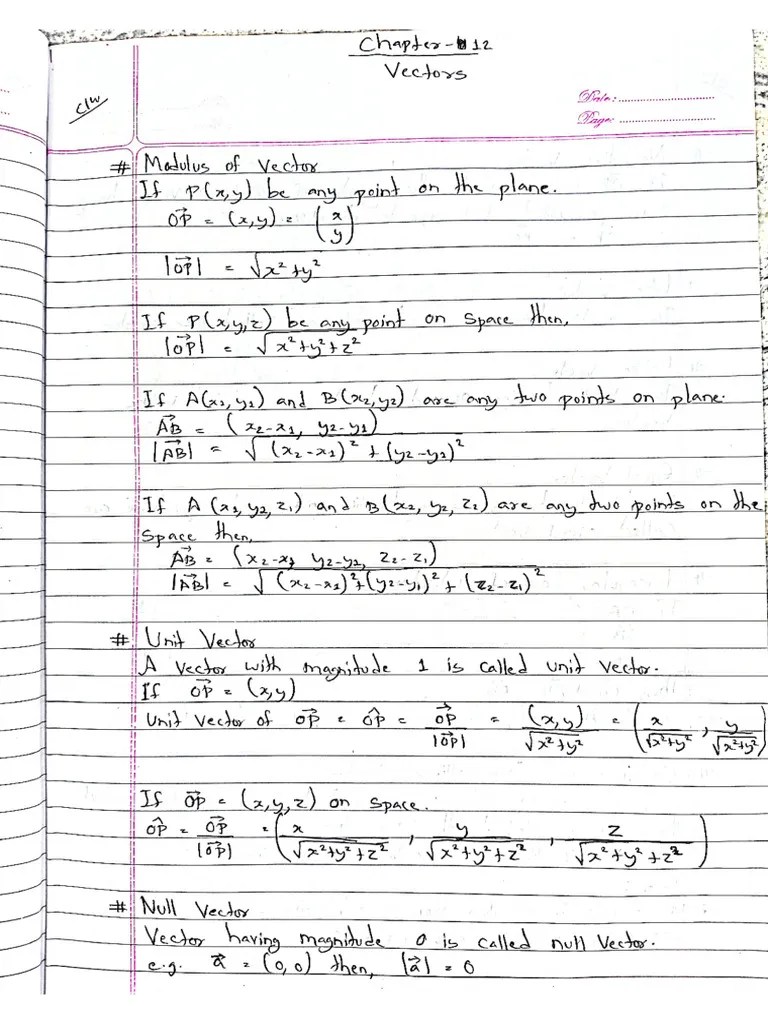 Chapter-12
Vectors
c/w
Date: ..............................
Page: ..............................
# Modulus of Vector
If P(x,y) be any point on the plane.
$\vec{OP}$ = (x,y) = $\begin{pmatrix} x \\ y \end{pmatrix}$
|$\vec{OP}$| = $\sqrt{x^2+y^2}$
If P(x,y,z) be any point on space then,
|$\vec{OP}$| = $\sqrt{x^2+y^2+z^2}$
If A(x₁,y₁) and B(x₂,y₂) are any two points on plane.
$\vec{AB}$ = (x₂-x₁, y₂-y₁)
|$\vec{AB}$| = $\sqrt{(x_2-x_1)^2+(y_2-y_1)^2}$
If A (x₁, y₂, z₁) and B(x₂, y₂, z₂) are any two points on the
space then,
$\vec{AB}$ = (x₂-x₁ y₂-y₁, z₂-z₁)
|$\vec{AB}$| = $\sqrt{(x_2-x_1)^2+(y_2-y_1)^2+(z_2-z_1)^2}$
# Unit Vector
A vector with magnitude 1 is called unit vector.
If $\vec{OP}$ = (x,y)
Unit Vector of $\vec{OP}$ = $\hat{OP}$ = $\frac{\vec{OP}}{|\vec{OP}|}$ = $\frac{(x,y)}{\sqrt{x^2+y^2}}$ = $\left(\frac{x}{\sqrt{x^2+y^2}}, \frac{y}{\sqrt{x^2+y^2}}\right)$
If $\vec{OP}$ = (x,y,z) on space.
$\hat{OP}$ = $\frac{\vec{OP}}{|\vec{OP}|}$ = $\left(\frac{x}{\sqrt{x^2+y^2+z^2}}, \frac{y}{\sqrt{x^2+y^2+z^2}}, \frac{z}{\sqrt{x^2+y^2+z^2}}\right)$
# Null Vector
Vector having magnitude 0 is called null vector.
e.g. $\vec{a}$ = (0,0) then, |$\vec{a}$| = 0